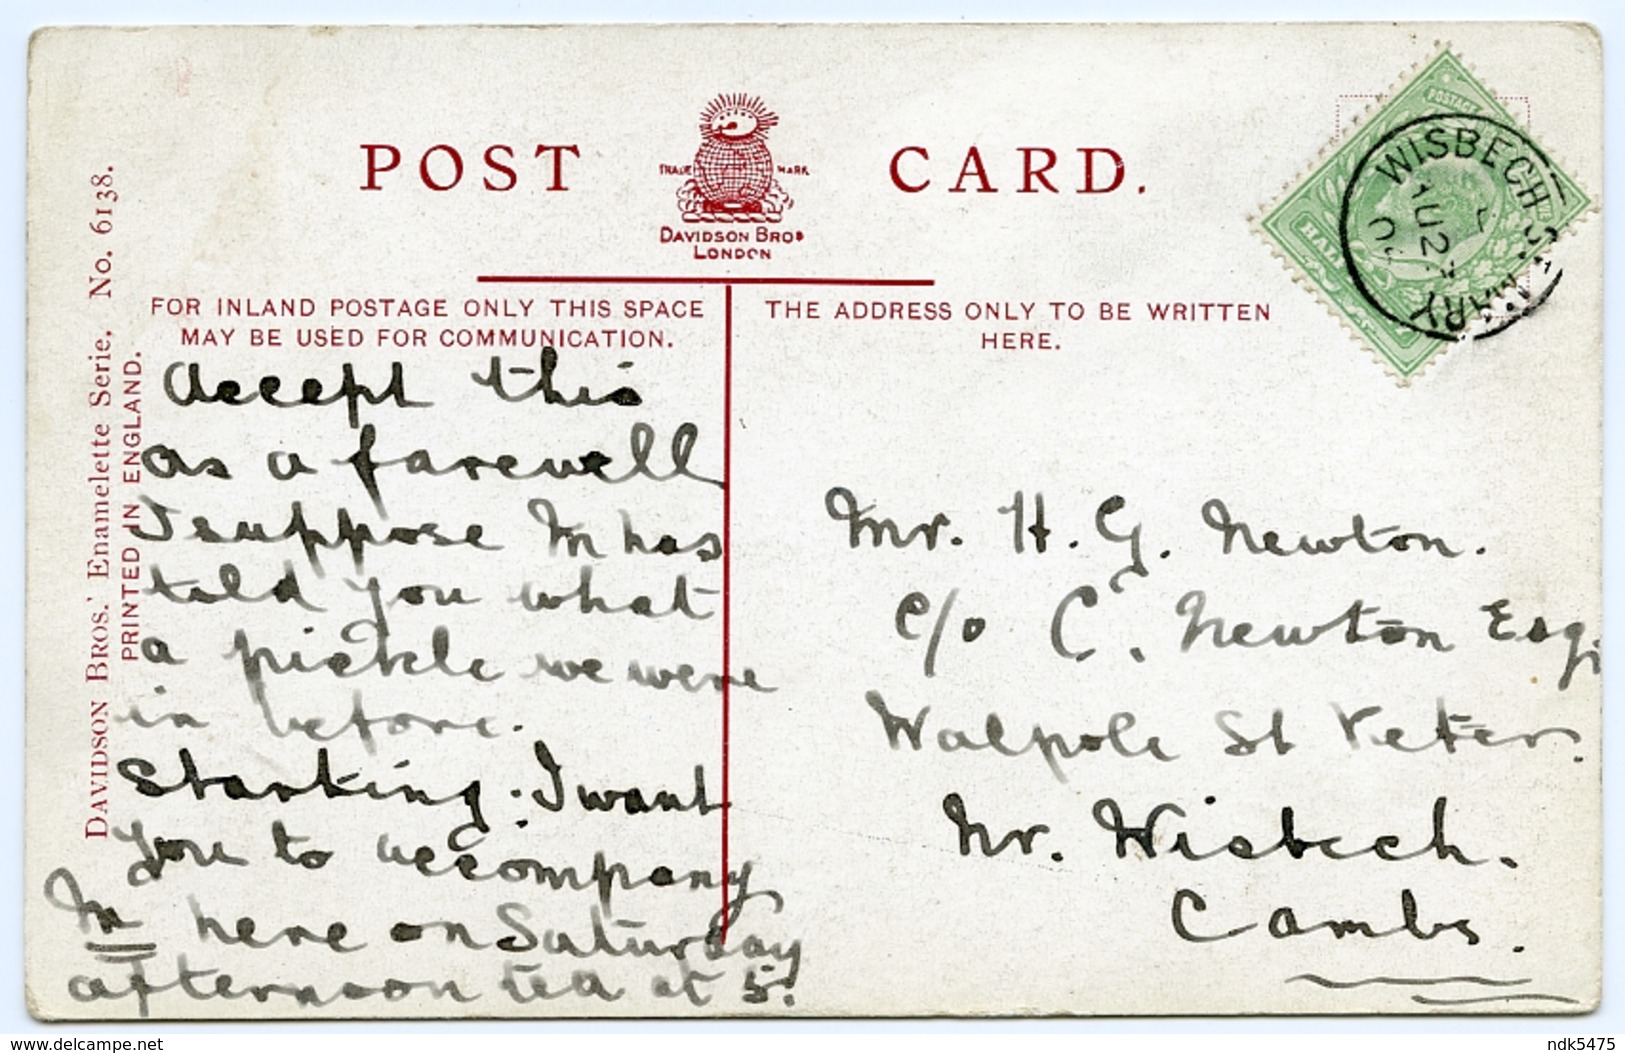 POST CARD.
TRADE MARK
DAVIDSON BROS
LONDON
FOR INLAND POSTAGE ONLY THIS SPACE
MAY BE USED FOR COMMUNICATION.
THE ADDRESS ONLY TO BE WRITTEN
HERE.
DAVIDSON BROS.' Enamelette Serie, No. 6138.
PRINTED IN ENGLAND.
POSTAGE
HALF
WISBECH ST MARY
Accept this
as a farewell
I suppose M has
told you what
a pickle we were
in before.
starting. I want
you to accompany
M here on Saturday
afternoon tea at 5.
Mr. H. G. Newton.
c/o C. Newton Esq,
Walpole St Peter.
Nr. Wisbech.
Cambs.
www.delcampe.net
ndk5475